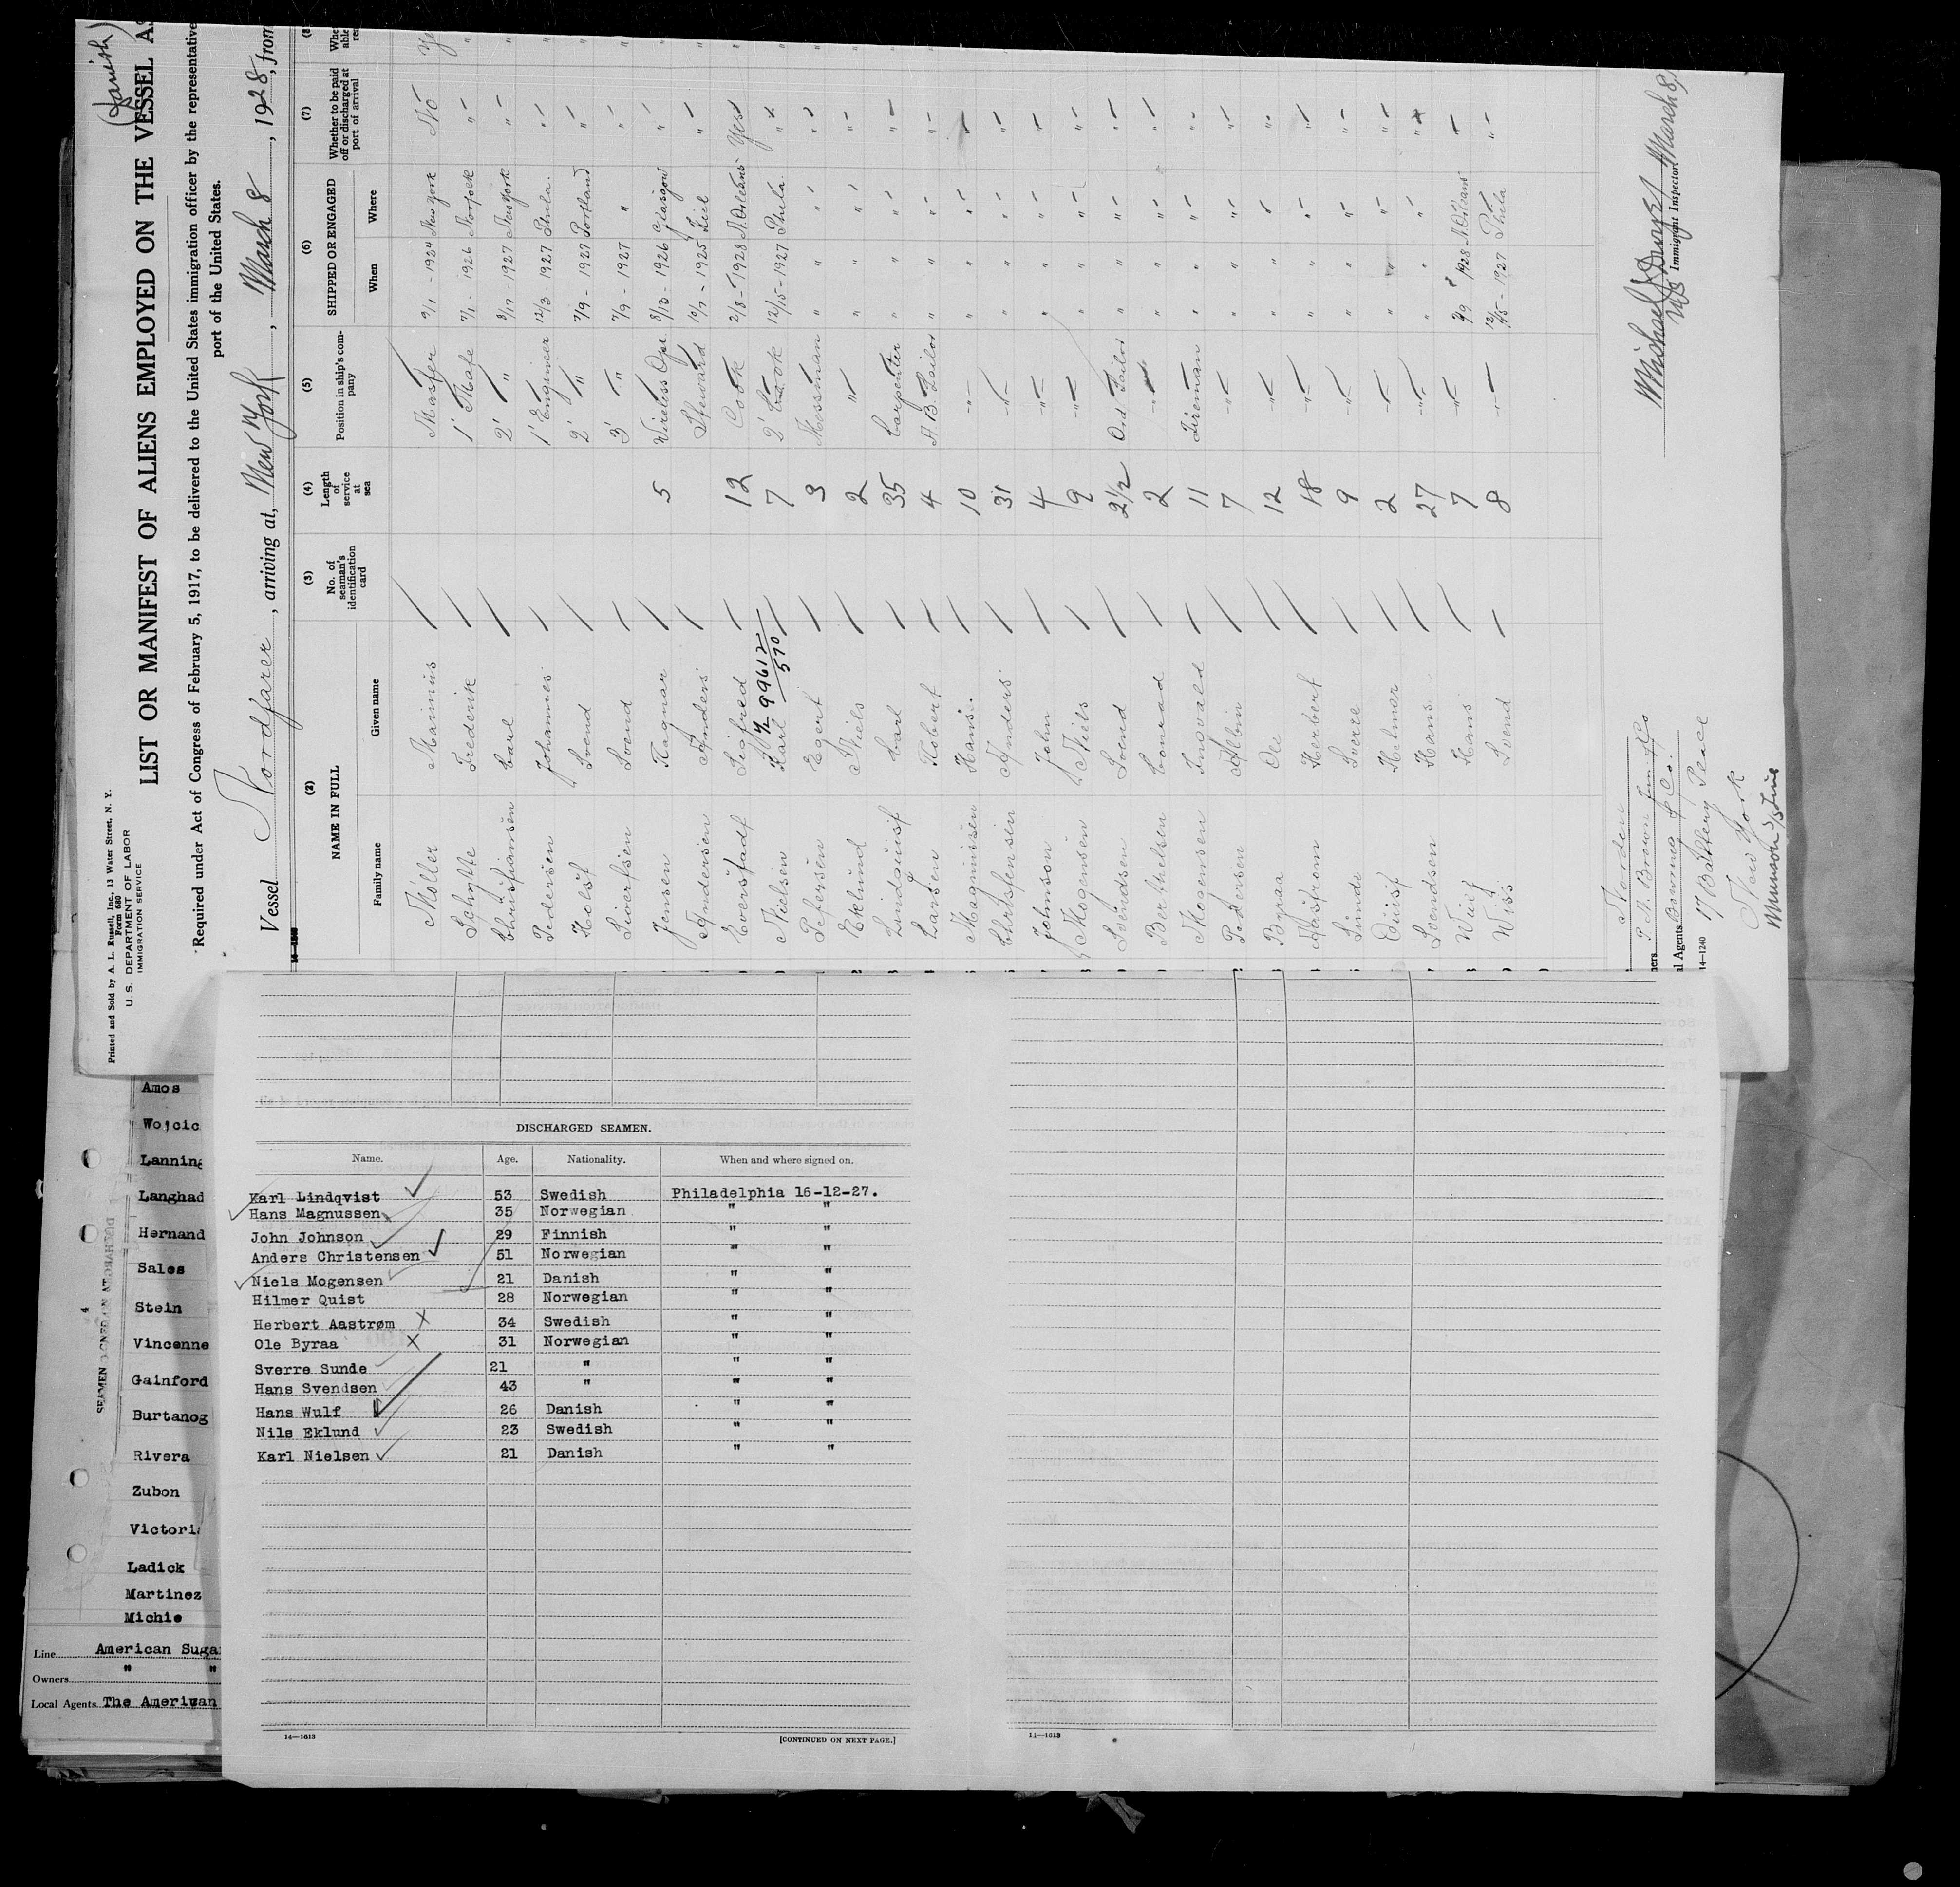 (Danish)
Printed and Sold by A. L. Russell, Inc., 13 Water Street, N. Y.
Form 680
U. S. DEPARTMENT OF LABOR
IMMIGRATION SERVICE
LIST OR MANIFEST OF ALIENS EMPLOYED ON THE VESSEL AS
Required under Act of Congress of February 5, 1917, to be delivered to the United States immigration officer by the representative
port of the United States.
Vessel Nordfarer, arriving at, New York, March 8, 1928, from
(2) NAME IN FULL
Family name Given name
(3) No. of seaman's identification card
(4) Length of service at sea
(5) Position in ship's company
(6) SHIPPED OR ENGAGED
When Where
(7) Whether to be paid off or discharged at port of arrival
Möller Marinus Master 9/1 - 1924 New York No
Schytte Frederik 1' Mate 7/1 - 1926 Norfolk "
Christiansen Carl 2' " 8/17 - 1927 New York "
Pedersen Johannes 1' Engineer 12/3 - 1927 Phila. "
Holst Svend 2' " 7/9 - 1927 Portland "
Sivertsen Svend 3' " 7/9 - 1927 " "
Jensen Ragnar 5 Wireless Opr. 8/13 - 1926 Glasgow "
Andersen Anders Steward 10/7 - 1925 Kiel "
Everstadt Sigfred 12 Cook 2/8 - 1928 N. Orleans Yes
4/2 99612/570
Nielsen Karl 7 2' Cook 12/15 - 1927 Phila. "
Petersen Egert 3 Messman " " " "
Eklund Niels 2 " " " " "
Lindquist Carl 35 Carpenter " " " "
Larsen Robert 4 A B Sailor " " " "
Magnussen Hans 10 " " " " "
Christensen Anders 31 " " " " "
Johnson John 4 " " " " "
Mogensen Niels 9 " " " " "
Svendsen Svend 2½ Ord Sailor " " " "
Berthelsen Conrad 2 " " " " "
Mogensen Ingvald 11 Fireman " " " "
Pedersen Albin 7 " " " " "
Byraa Ole 12 " " " " "
Aastrom Herbert 18 " " " " "
Sunde Sverre 9 " " " " "
Quist Helmer 2 " " " " "
Svendsen Hans 27 " " " " "
Wulf Hans 7 " 2/9 1928 N. Orleans "
Svend 8 " 12/15 - 1927 Phila "
Norden
Agents Bowring & Co.
17 Battery Place
New York
Munson Line
14—1240
Michael
Immigrant Inspector. March 8,
Amos
Wojcic
Lanning
Langhad
Hernand
Sales
Stein
Vincenne
Gainford
Burtanog
Rivera
Zubon
Victori
Ladick
Martinez
Michie
Line American Suga
Owners " "
Local Agents The Ameriwan
DISCHARGED SEAMEN.
Name. Age. Nationality. When and where signed on.
Karl Lindqvist 53 Swedish Philadelphia 16-12-27.
Hans Magnussen 35 Norwegian " "
John Johnson 29 Finnish " "
Anders Christensen 51 Norwegian " "
Niels Mogensen 21 Danish " "
Hilmer Quist 28 Norwegian " "
Herbert Aastrøm 34 Swedish " "
Ole Byraa 31 Norwegian " "
Sverre Sunde 21 " " "
Hans Svendsen 43 " " "
Hans Wulf 26 Danish " "
Nils Eklund 23 Swedish " "
Karl Nielsen 21 Danish " "
14—1613
[CONTINUED ON NEXT PAGE.]
11—1613